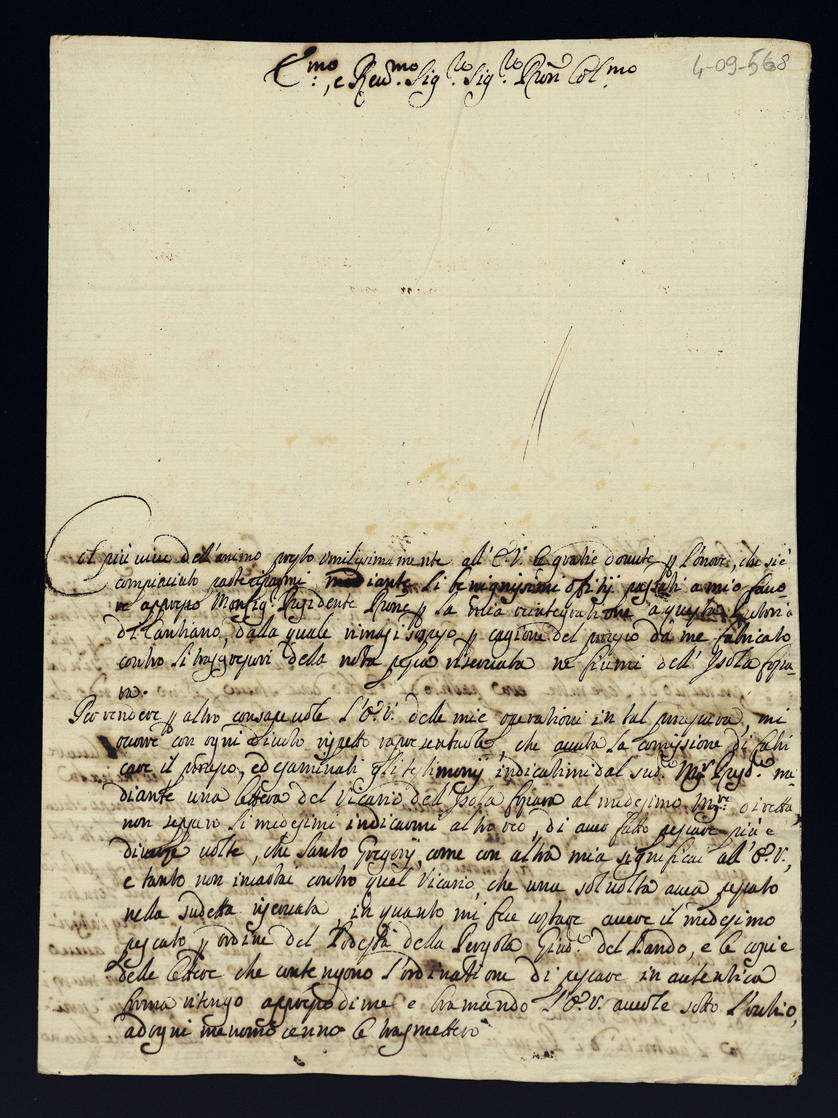 4-09-568
E.mo, e Reu.mo Sig.re Sig.re Pron Col.mo
Col più uiuo dell'animo porto umilissimamente all'E.V. le grazie douute p l'onore, che si è
compiaciuto partecipiarmi mediante li benignissimi offitij passati a mio fauo-
re appresso Monsig.r Presidente Prone p la mia reintegratione a questa Pretoria
di Cantiano, dalla quale rimasi sospeso p cagione del processo da me fabricato
contro li trasgressori della nota pesca riseruata ne fiumi dell'Isola fossa-
ra.
Per rendere p altro consapeuole l'E.V. delle mie operationi in tal pressura, mi
occorre con ogni diuoto rispetto rapresentarle, che auuta la comissione di fabri
care il processo, ed esaminati gli testimonij indicatimi dal sud.o Mr. Presid.e me-
diante una lettera del Vicario dell'Isola fossara al medesimo Mre diretta,
non seppero li medesimi indicarmi altro reo, di auer fatto pescare più e
diuerse uolte, che Santo Gregorij, come con altra mia significai all'E.V.,
e tanto non incaltrai contro quel Vicario, che una sol uolta auea pescato
nella sudetta riseruata, in quanto mi fece costare auere il medesimo
pescato p ordine del Podestà della Pergola Giud.e del Bando, e le copie
delle lettere che contengono l'ordinatione di pescare in autentica
forma ritengo appresso di me e bramando l'E.V. auerle sotto l'occhio,
ad ogni menomo cenno le trasmetterò